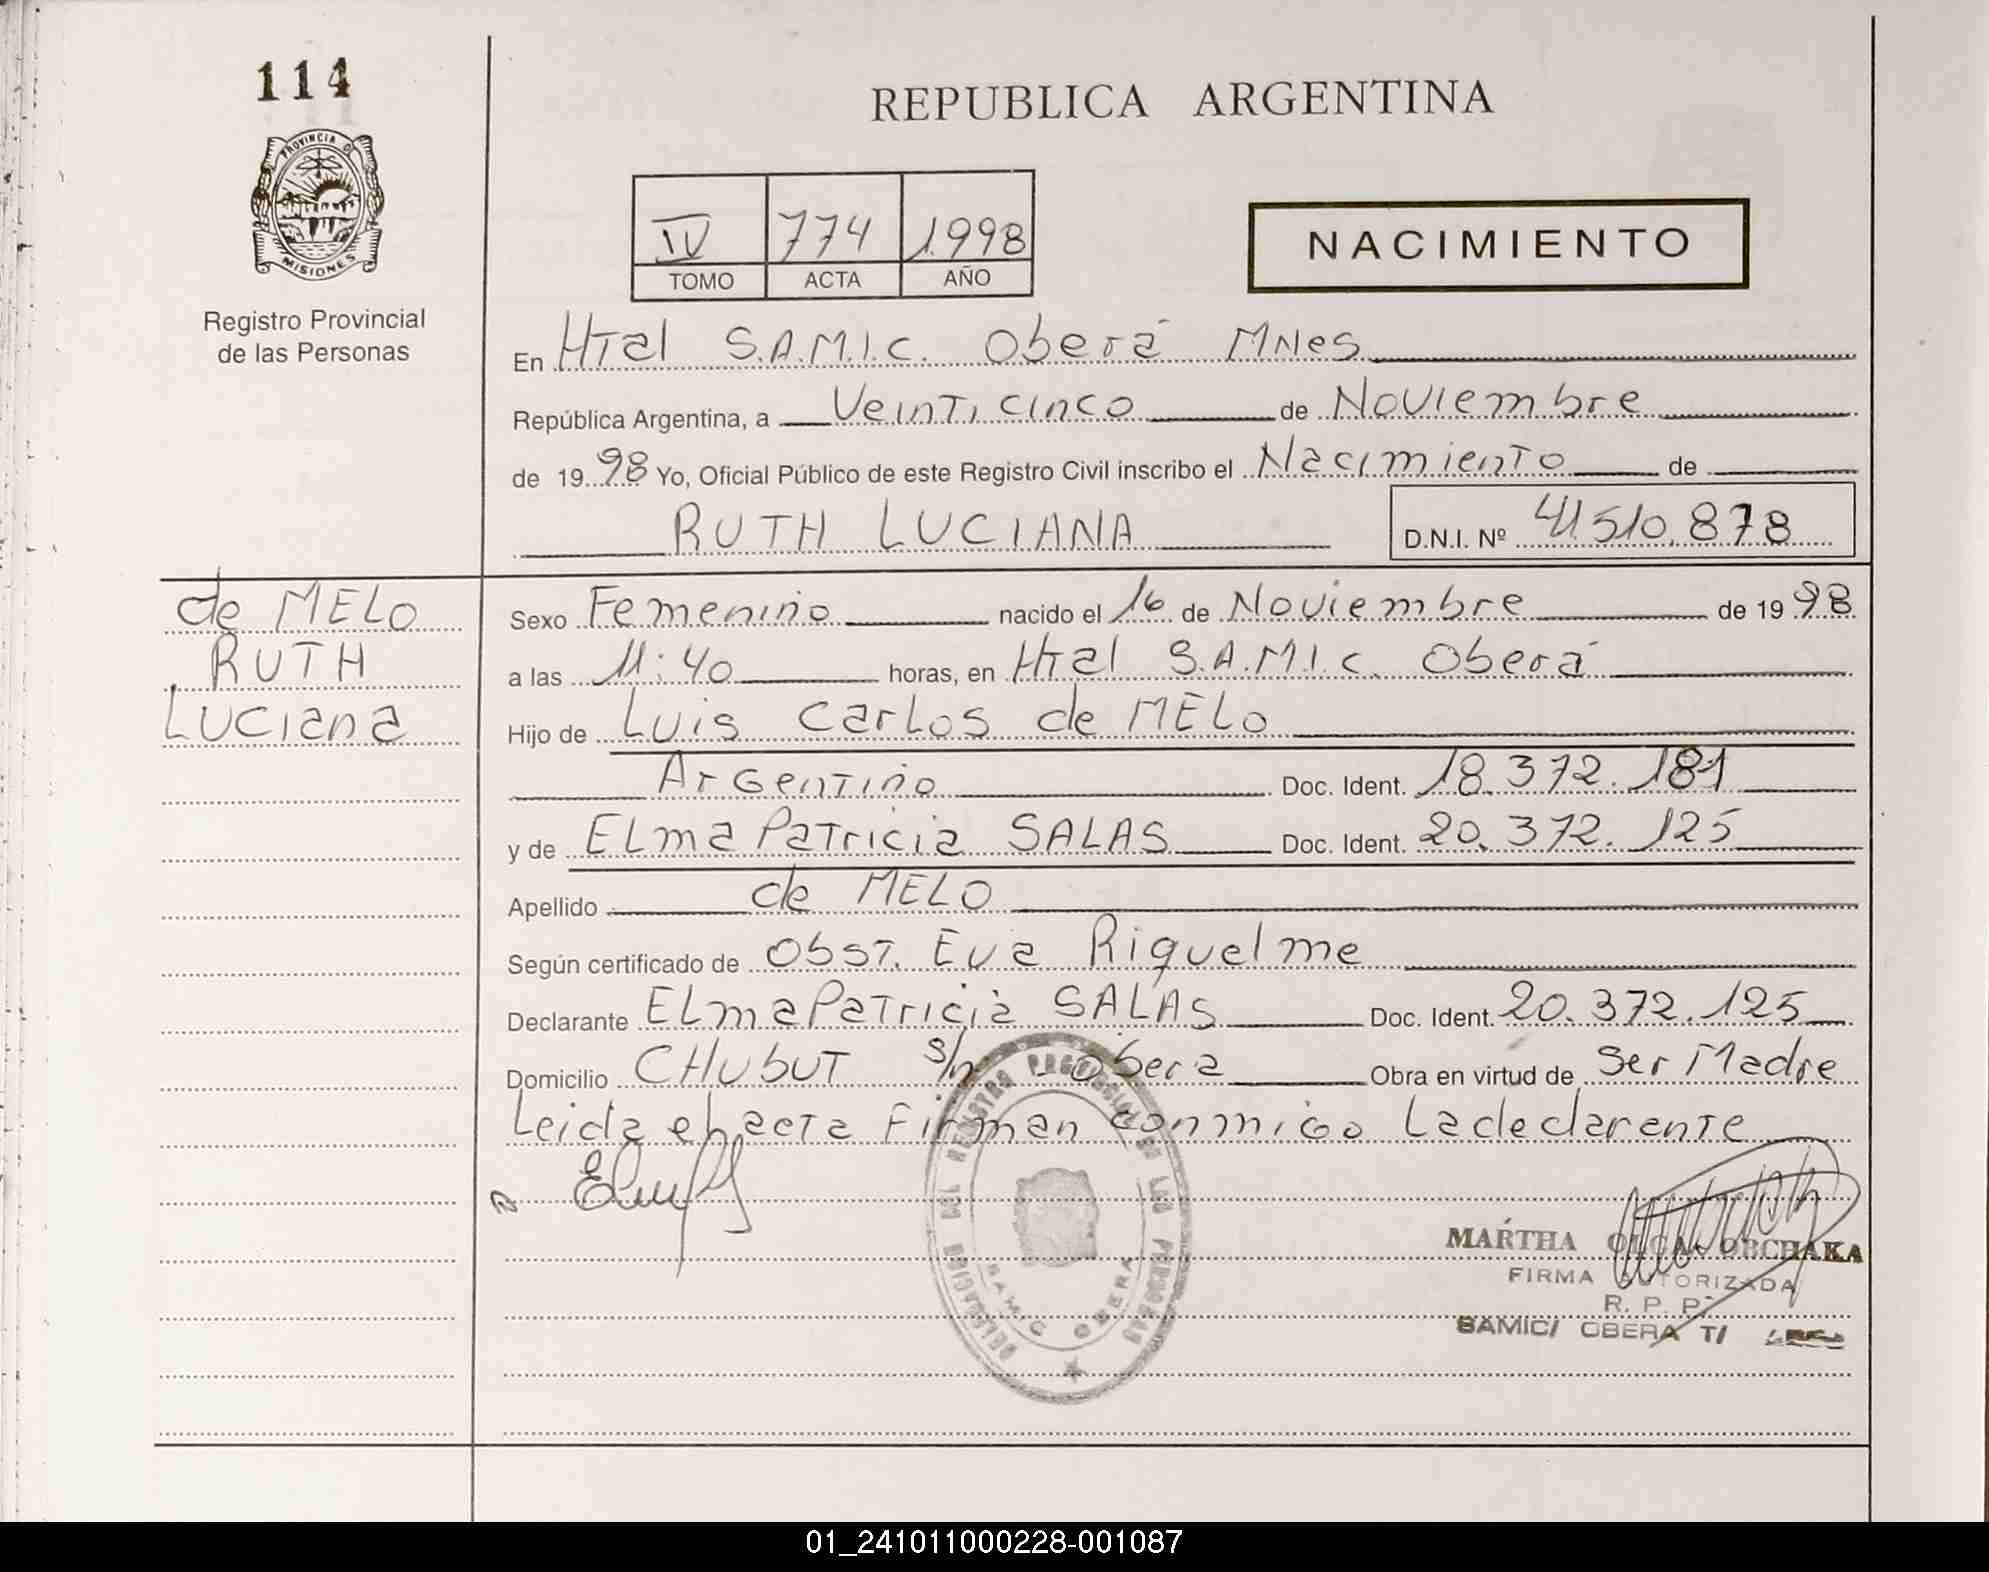 114
PROVINCIA D
MISIONES
Registro Provincial
de las Personas
REPUBLICA ARGENTINA
IV 774 1998
TOMO ACTA AÑO
NACIMIENTO
En Htal S.A.M.I.C. Oberá MNes
República Argentina, a Veinticinco de Noviembre
de 1998 Yo, Oficial Público de este Registro Civil inscribo el Nacimiento de
RUTH LUCIANA D.N.I. Nº 41510.878
de MELO
RUTH
Luciana
Sexo Femenino nacido el 16 de Noviembre de 1998
a las 11:40 horas, en Htal S.A.M.I.C. Oberá
Hijo de Luis Carlos de MELO
Argentino Doc. Ident. 18.372.181
y de ELma Patricia SALAS Doc. Ident. 20.372.125
Apellido de MELO
Según certificado de Obst. Eva Riquelme
Declarante ELma Patricia SALAS Doc. Ident. 20.372.125
Domicilio CHubuT s/n Obera Obra en virtud de Ser Madre
Leida el acta Firman conmigo La declarante
DELEGACION DEL REGISTRO PROVINCIAL DE LAS PERSONAS
SAMIC OBERA
MARTHA OLGA OBCHAKA
FIRMA AUTORIZADA
R. P. P.
SAMIC/ OBERA T/
01_241011000228-001087